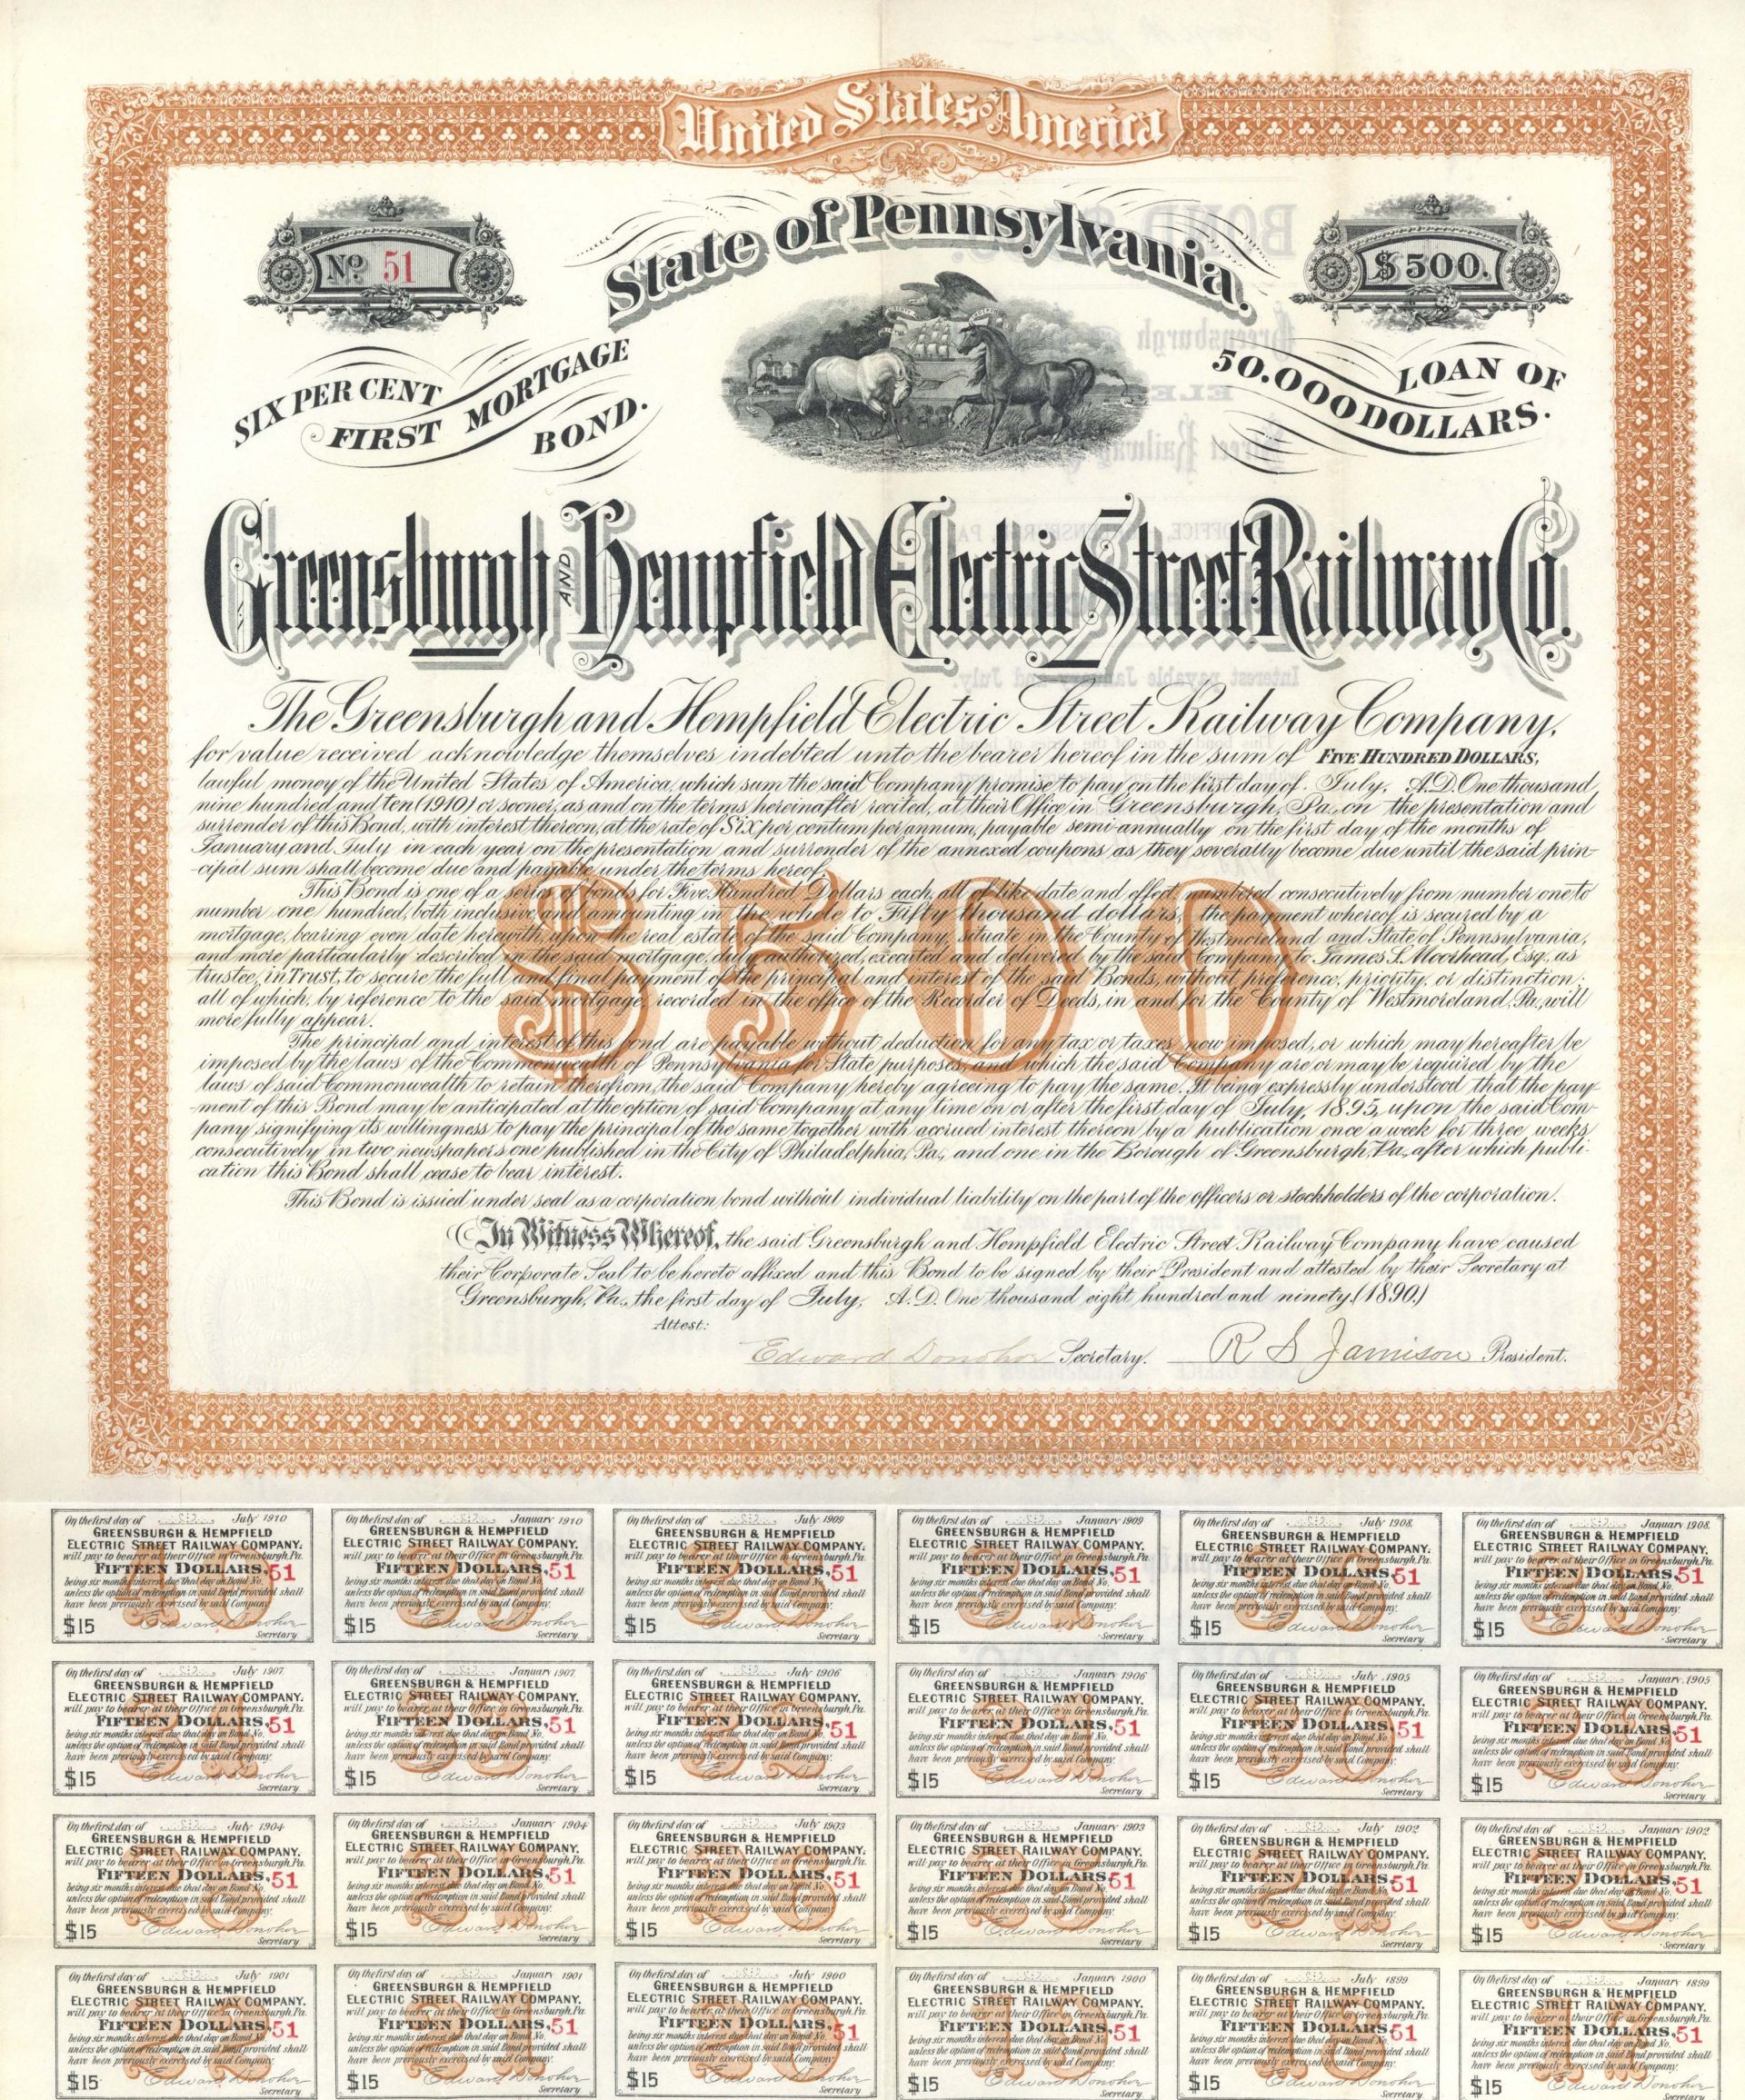 United States of America
State of Pennsylvania.
Nº 51
$500.
SIX PER CENT
FIRST MORTGAGE
BOND.
LOAN OF
50.000 DOLLARS.
Greensburgh AND Hempfield Electric Street Railway Co.
The Greensburgh and Hempfield Electric Street Railway Company,
for value received acknowledge themselves indebted unto the bearer hereof in the sum of FIVE HUNDRED DOLLARS,
lawful money of the United States of America, which sum the said Company promise to pay on the first day of July, A.D. One thousand
nine hundred and ten (1910) or sooner, as and on the terms hereinafter recited, at their Office in Greensburgh, Pa., on the presentation and
surrender of this Bond, with interest thereon, at the rate of Six per centum per annum, payable semi-annually on the first day of the months of
January and July in each year on the presentation and surrender of the annexed coupons as they severally become due until the said prin-
-cipal sum shall become due and payable under the terms hereof.
$500
This Bond is one of a series of bonds for Five Hundred Dollars each, all of like date and effect, numbered consecutively from number one to
number one hundred, both inclusive, and amounting in the whole to Fifty thousand dollars, the payment whereof is secured by a
mortgage, bearing even date herewith, upon the real estate of the said Company, situate in the County of Westmoreland and State of Pennsylvania,
and more particularly described in the said mortgage, duly authorized, executed and delivered by the said Company to James S. Moorhead, Esq., as
trustee, in Trust, to secure the full and final payment of the principal and interest of the said Bonds, without preference, priority, or distinction;
all of which, by reference to the said mortgage, recorded in the office of the Recorder of Deeds, in and for the County of Westmoreland, Pa., will
more fully appear.
The principal and interest of this bond are payable without deduction for any tax or taxes now imposed, or which may hereafter be
imposed by the laws of the Commonwealth of Pennsylvania for State purposes, and which the said Company are or may be required by the
laws of said Commonwealth to retain therefrom, the said Company hereby agreeing to pay the same. It being expressly understood that the pay-
-ment of this Bond may be anticipated at the option of said Company at any time on or after the first day of July, 1895, upon the said Com-
pany signifying its willingness to pay the principal of the same together with accrued interest thereon by a publication once a week for three weeks
consecutively in two newspapers one published in the City of Philadelphia, Pa., and one in the Borough of Greensburgh, Pa., after which publi-
cation this Bond shall cease to bear interest.
This Bond is issued under seal as a corporation bond without individual liability on the part of the officers or stockholders of the corporation.
In Witness Whereof, the said Greensburgh and Hempfield Electric Street Railway Company have caused
their Corporate Seal to be hereto affixed and this Bond to be signed by their President and attested by their Secretary at
Greensburgh, Pa., the first day of July, A.D. One thousand eight hundred and ninety. (1890.)
Attest:
Edward Donohoe Secretary. R S Jamison President.
On the first day of July 1910
GREENSBURGH & HEMPFIELD
ELECTRIC STREET RAILWAY COMPANY.
will pay to bearer at their Office in Greensburgh, Pa.
FIFTEEN DOLLARS, 51
being six months interest due that day on Bond No.
unless the option of redemption in said Bond provided shall
have been previously exercised by said Company.
$15 Edward Donohoe
Secretary
On the first day of January 1910
GREENSBURGH & HEMPFIELD
ELECTRIC STREET RAILWAY COMPANY.
will pay to bearer at their Office in Greensburgh, Pa.
FIFTEEN DOLLARS, 51
being six months interest due that day on Bond No.
unless the option of redemption in said Bond provided shall
have been previously exercised by said Company.
$15 Edward Donohoe
Secretary
On the first day of July 1909
GREENSBURGH & HEMPFIELD
ELECTRIC STREET RAILWAY COMPANY.
will pay to bearer at their Office in Greensburgh, Pa.
FIFTEEN DOLLARS, 51
being six months interest due that day on Bond No.
unless the option of redemption in said Bond provided shall
have been previously exercised by said Company.
$15 Edward Donohoe
Secretary
On the first day of January 1909
GREENSBURGH & HEMPFIELD
ELECTRIC STREET RAILWAY COMPANY.
will pay to bearer at their Office in Greensburgh, Pa.
FIFTEEN DOLLARS, 51
being six months interest due that day on Bond No.
unless the option of redemption in said Bond provided shall
have been previously exercised by said Company.
$15 Edward Donohoe
Secretary
On the first day of July 1908
GREENSBURGH & HEMPFIELD
ELECTRIC STREET RAILWAY COMPANY.
will pay to bearer at their Office in Greensburgh, Pa.
FIFTEEN DOLLARS, 51
being six months interest due that day on Bond No.
unless the option of redemption in said Bond provided shall
have been previously exercised by said Company.
$15 Edward Donohoe
Secretary
On the first day of January 1908
GREENSBURGH & HEMPFIELD
ELECTRIC STREET RAILWAY COMPANY.
will pay to bearer at their Office in Greensburgh, Pa.
FIFTEEN DOLLARS, 51
being six months interest due that day on Bond No.
unless the option of redemption in said Bond provided shall
have been previously exercised by said Company.
$15 Edward Donohoe
Secretary
On the first day of July 1907
GREENSBURGH & HEMPFIELD
ELECTRIC STREET RAILWAY COMPANY.
will pay to bearer at their Office in Greensburgh, Pa.
FIFTEEN DOLLARS, 51
being six months interest due that day on Bond No.
unless the option of redemption in said Bond provided shall
have been previously exercised by said Company.
$15 Edward Donohoe
Secretary
On the first day of January 1907
GREENSBURGH & HEMPFIELD
ELECTRIC STREET RAILWAY COMPANY.
will pay to bearer at their Office in Greensburgh, Pa.
FIFTEEN DOLLARS, 51
being six months interest due that day on Bond No.
unless the option of redemption in said Bond provided shall
have been previously exercised by said Company.
$15 Edward Donohoe
Secretary
On the first day of July 1906
GREENSBURGH & HEMPFIELD
ELECTRIC STREET RAILWAY COMPANY.
will pay to bearer at their Office in Greensburgh, Pa.
FIFTEEN DOLLARS, 51
being six months interest due that day on Bond No.
unless the option of redemption in said Bond provided shall
have been previously exercised by said Company.
$15 Edward Donohoe
Secretary
On the first day of January 1906
GREENSBURGH & HEMPFIELD
ELECTRIC STREET RAILWAY COMPANY.
will pay to bearer at their Office in Greensburgh, Pa.
FIFTEEN DOLLARS, 51
being six months interest due that day on Bond No.
unless the option of redemption in said Bond provided shall
have been previously exercised by said Company.
$15 Edward Donohoe
Secretary
On the first day of July 1905
GREENSBURGH & HEMPFIELD
ELECTRIC STREET RAILWAY COMPANY.
will pay to bearer at their Office in Greensburgh, Pa.
FIFTEEN DOLLARS, 51
being six months interest due that day on Bond No.
unless the option of redemption in said Bond provided shall
have been previously exercised by said Company.
$15 Edward Donohoe
Secretary
On the first day of January 1905
GREENSBURGH & HEMPFIELD
ELECTRIC STREET RAILWAY COMPANY.
will pay to bearer at their Office in Greensburgh, Pa.
FIFTEEN DOLLARS, 51
being six months interest due that day on Bond No.
unless the option of redemption in said Bond provided shall
have been previously exercised by said Company.
$15 Edward Donohoe
Secretary
On the first day of July 1904
GREENSBURGH & HEMPFIELD
ELECTRIC STREET RAILWAY COMPANY.
will pay to bearer at their Office in Greensburgh, Pa.
FIFTEEN DOLLARS, 51
being six months interest due that day on Bond No.
unless the option of redemption in said Bond provided shall
have been previously exercised by said Company.
$15 Edward Donohoe
Secretary
On the first day of January 1904
GREENSBURGH & HEMPFIELD
ELECTRIC STREET RAILWAY COMPANY.
will pay to bearer at their Office in Greensburgh, Pa.
FIFTEEN DOLLARS, 51
being six months interest due that day on Bond No.
unless the option of redemption in said Bond provided shall
have been previously exercised by said Company.
$15 Edward Donohoe
Secretary
On the first day of July 1903
GREENSBURGH & HEMPFIELD
ELECTRIC STREET RAILWAY COMPANY.
will pay to bearer at their Office in Greensburgh, Pa.
FIFTEEN DOLLARS, 51
being six months interest due that day on Bond No.
unless the option of redemption in said Bond provided shall
have been previously exercised by said Company.
$15 Edward Donohoe
Secretary
On the first day of January 1903
GREENSBURGH & HEMPFIELD
ELECTRIC STREET RAILWAY COMPANY.
will pay to bearer at their Office in Greensburgh, Pa.
FIFTEEN DOLLARS, 51
being six months interest due that day on Bond No.
unless the option of redemption in said Bond provided shall
have been previously exercised by said Company.
$15 Edward Donohoe
Secretary
On the first day of July 1902
GREENSBURGH & HEMPFIELD
ELECTRIC STREET RAILWAY COMPANY.
will pay to bearer at their Office in Greensburgh, Pa.
FIFTEEN DOLLARS, 51
being six months interest due that day on Bond No.
unless the option of redemption in said Bond provided shall
have been previously exercised by said Company.
$15 Edward Donohoe
Secretary
On the first day of January 1902
GREENSBURGH & HEMPFIELD
ELECTRIC STREET RAILWAY COMPANY.
will pay to bearer at their Office in Greensburgh, Pa.
FIFTEEN DOLLARS, 51
being six months interest due that day on Bond No.
unless the option of redemption in said Bond provided shall
have been previously exercised by said Company.
$15 Edward Donohoe
Secretary
On the first day of July 1901
GREENSBURGH & HEMPFIELD
ELECTRIC STREET RAILWAY COMPANY.
will pay to bearer at their Office in Greensburgh, Pa.
FIFTEEN DOLLARS, 51
being six months interest due that day on Bond No.
unless the option of redemption in said Bond provided shall
have been previously exercised by said Company.
$15 Edward Donohoe
Secretary
On the first day of January 1901
GREENSBURGH & HEMPFIELD
ELECTRIC STREET RAILWAY COMPANY.
will pay to bearer at their Office in Greensburgh, Pa.
FIFTEEN DOLLARS, 51
being six months interest due that day on Bond No.
unless the option of redemption in said Bond provided shall
have been previously exercised by said Company.
$15 Edward Donohoe
Secretary
On the first day of July 1900
GREENSBURGH & HEMPFIELD
ELECTRIC STREET RAILWAY COMPANY.
will pay to bearer at their Office in Greensburgh, Pa.
FIFTEEN DOLLARS, 51
being six months interest due that day on Bond No.
unless the option of redemption in said Bond provided shall
have been previously exercised by said Company.
$15 Edward Donohoe
Secretary
On the first day of January 1900
GREENSBURGH & HEMPFIELD
ELECTRIC STREET RAILWAY COMPANY.
will pay to bearer at their Office in Greensburgh, Pa.
FIFTEEN DOLLARS, 51
being six months interest due that day on Bond No.
unless the option of redemption in said Bond provided shall
have been previously exercised by said Company.
$15 Edward Donohoe
Secretary
On the first day of July 1899
GREENSBURGH & HEMPFIELD
ELECTRIC STREET RAILWAY COMPANY.
will pay to bearer at their Office in Greensburgh, Pa.
FIFTEEN DOLLARS, 51
being six months interest due that day on Bond No.
unless the option of redemption in said Bond provided shall
have been previously exercised by said Company.
$15 Edward Donohoe
Secretary
On the first day of January 1899
GREENSBURGH & HEMPFIELD
ELECTRIC STREET RAILWAY COMPANY.
will pay to bearer at their Office in Greensburgh, Pa.
FIFTEEN DOLLARS, 51
being six months interest due that day on Bond No.
unless the option of redemption in said Bond provided shall
have been previously exercised by said Company.
$15 Edward Donohoe
Secretary